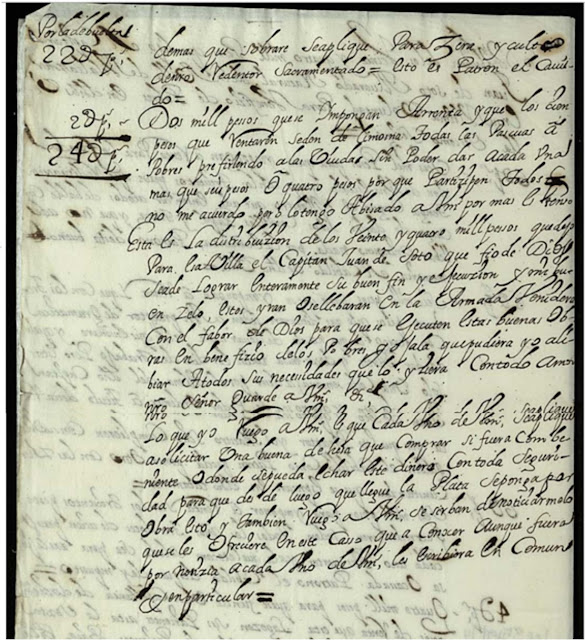 Por la de buelta
22U ps
demas que sobrare se aplique Para Zera y culto
de nro Redentor Sacramentado = Esto es Patron el Cavil
do =
2U ps
Dos mill pesos que se Impongan A rrenta y que los cien
24U ps
pesos que Rentaren se den de limosna todas las Pascuas a
Pobres prefiriendo a las Viudas sin Poder dar a cada Una
mas que seis pesos o quatro pesos por que Partizipen todos =
no me acuerdo pero lo tengo Abisado a Vms por mas
Esta es La distribuzion de los Veinte y quatro mill pesos que dejo
Para Esa Villa el Capitan Juan de Soto que goze de Dios
se a de Lograr Enteramente su buen fin y Ejecuzion
en Zelo, Estos yran o se llebaran En la Armada Venidera
Con el fabor de Dios para que se Ejecuten Estas buenas Ob
ras en benefizio de los Pobres y ojala que pudiera yo ali
biar A todos sus nezesidades que lo yziera Con todo Amor
nro Señor Guarde a Vms
Lo que yo Ruego a Vms es que Cada Uno de Vms se aplique
a solicitar Una buena dehesa que Comprar si fuera Combe
niente o donde se pueda echar Este dinero Con toda Seguri
dad para que desde luego que llegue la Plata se ponga por
Obra Esto y tambien Ruego a Vms se sirban de noticiarmelo
que se les Ofreziere En este Caso que a Conocer Aunque fuera
por notizia a cada Uno de Vms, les Escribiera En Comun
y en particular =